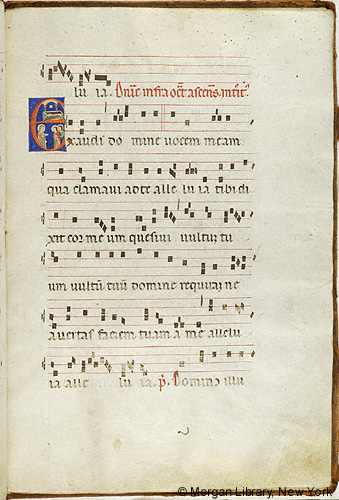 lu ia. Dnic infra oct ascens. introit.
Exaudi domine vocem meam
qua clamavi ad te alle lu ia tibi di
xit cor me um quesivi vultuz tu
um vultu tuu domine requiraz ne
avertas faciem tuam a me allelu
ia alle lu ia. p. Dominus illu
© Morgan Library, New York